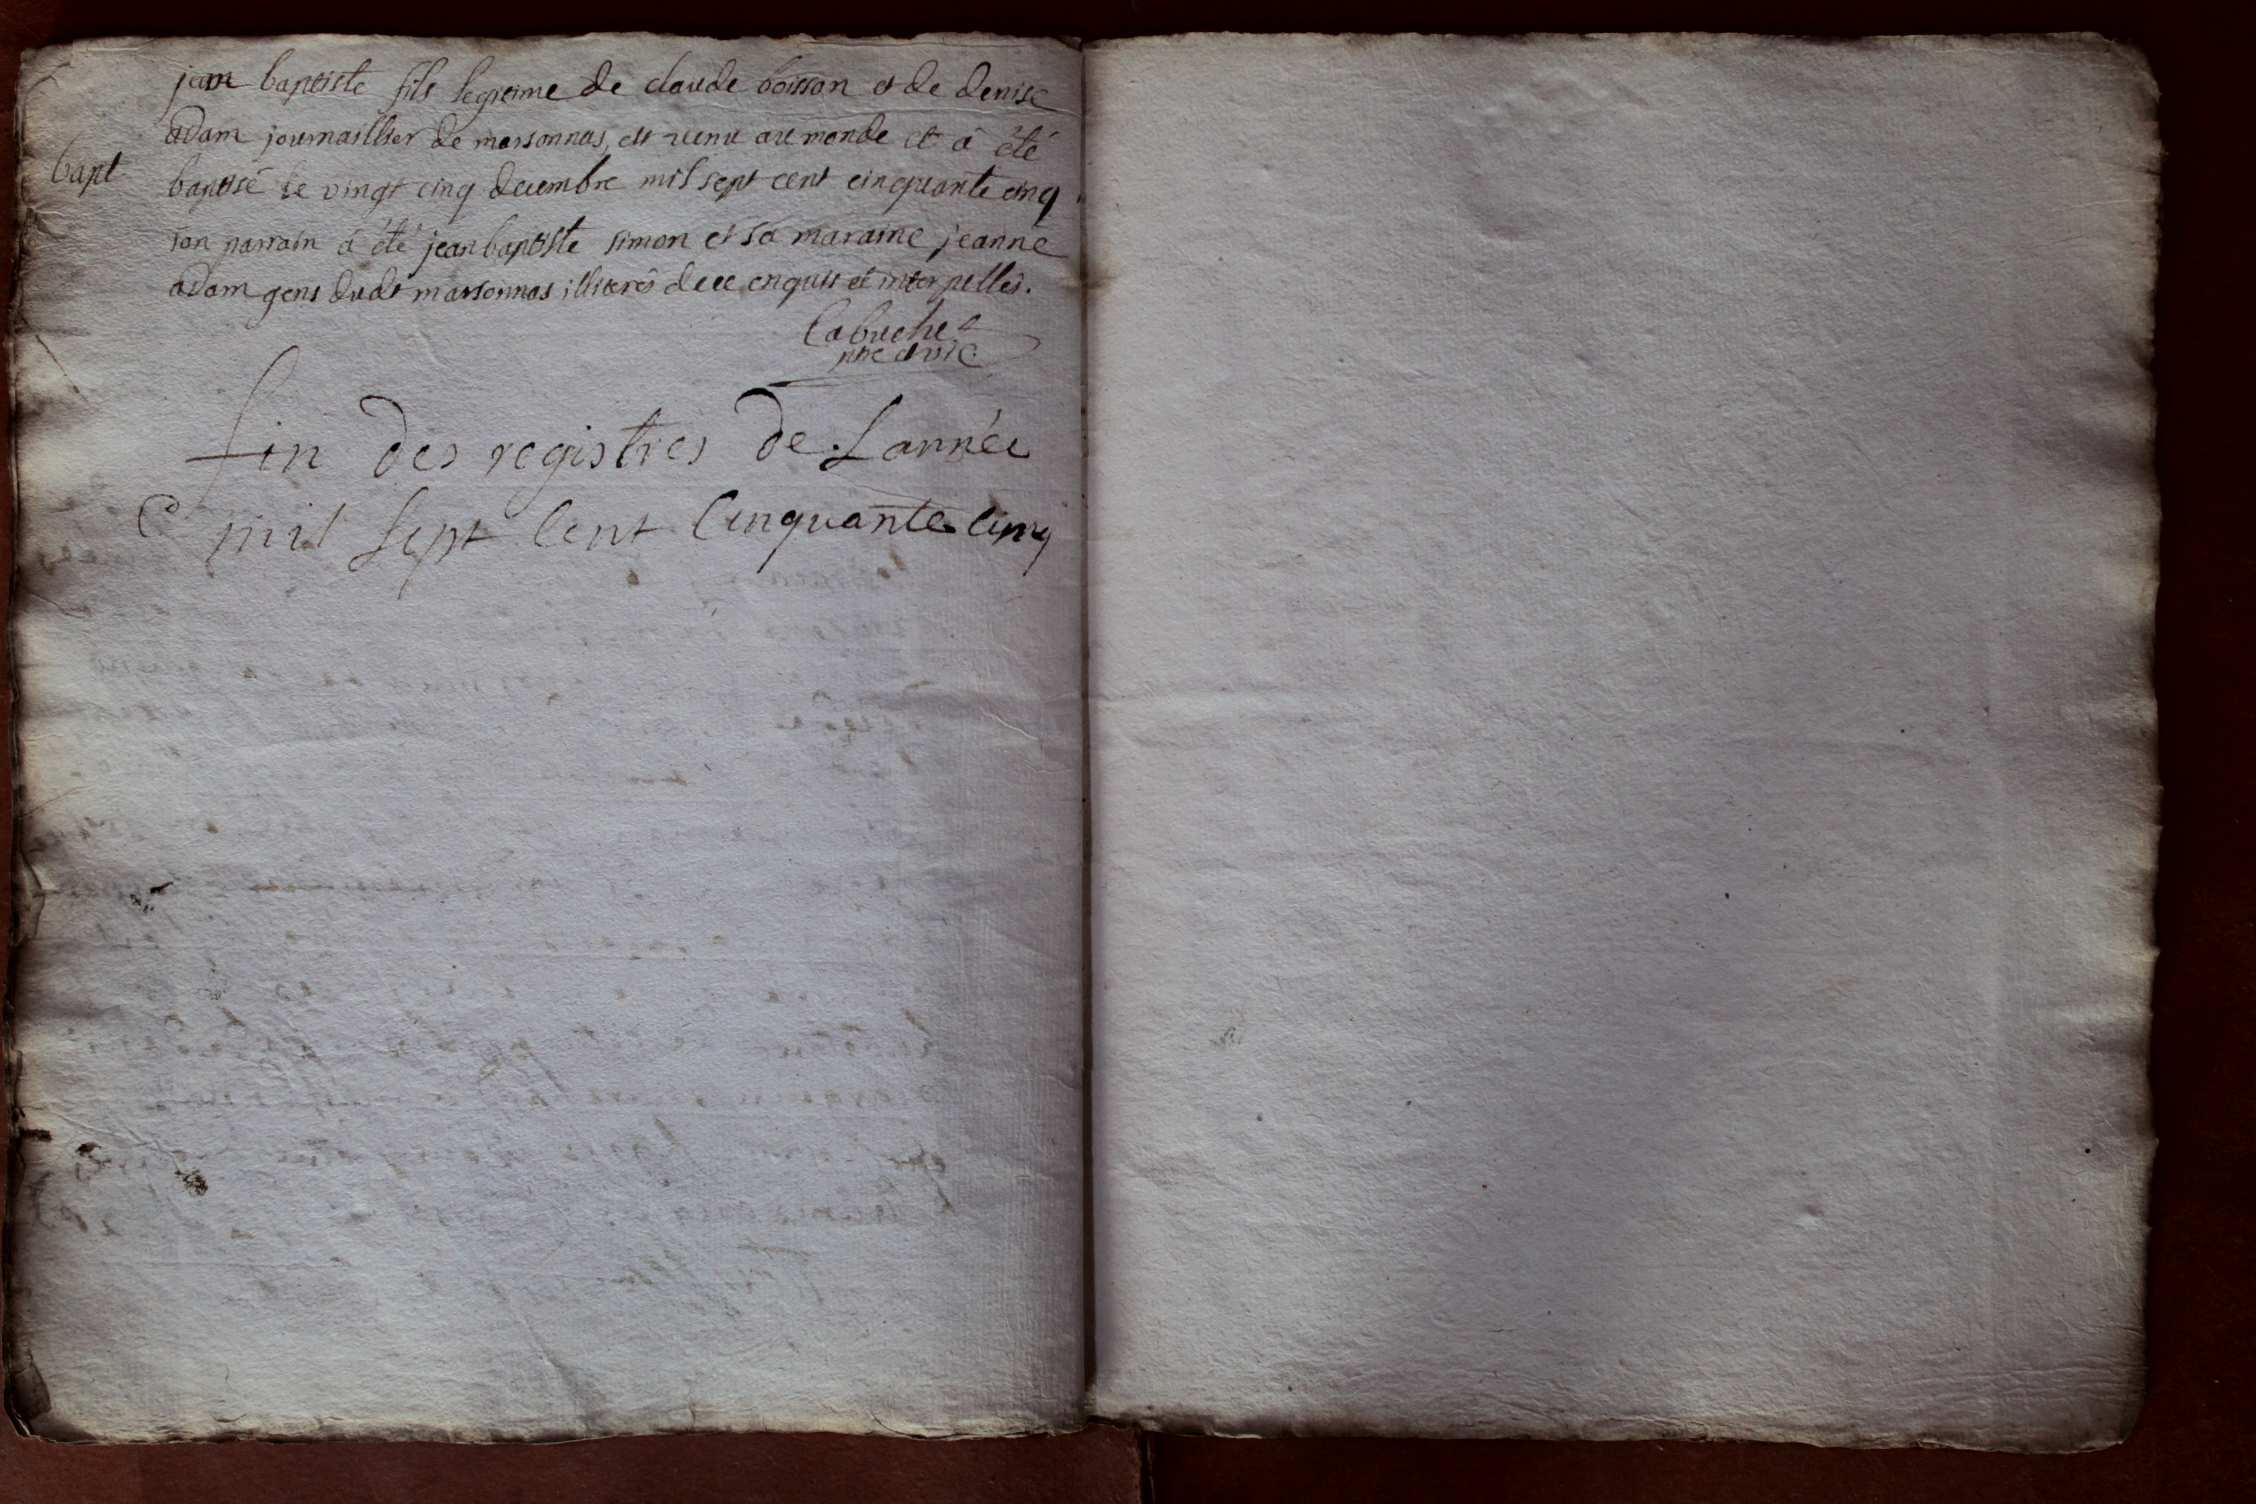 jean baptiste fils legitime de claude boisson et de denise
adam journaillier de marsonnas, est venu au monde et à été
bapt
baptisé le vingt cinq decembre mil sept cent cinquante cinq
son parrain à été jean baptiste simon et sa maraine jeanne
adam gens dudt marsonnas illiterés de ce enquis et interpellés.
Cabuchet
fin des registres de Lannée
mil sept Cent Cinquante Cinq